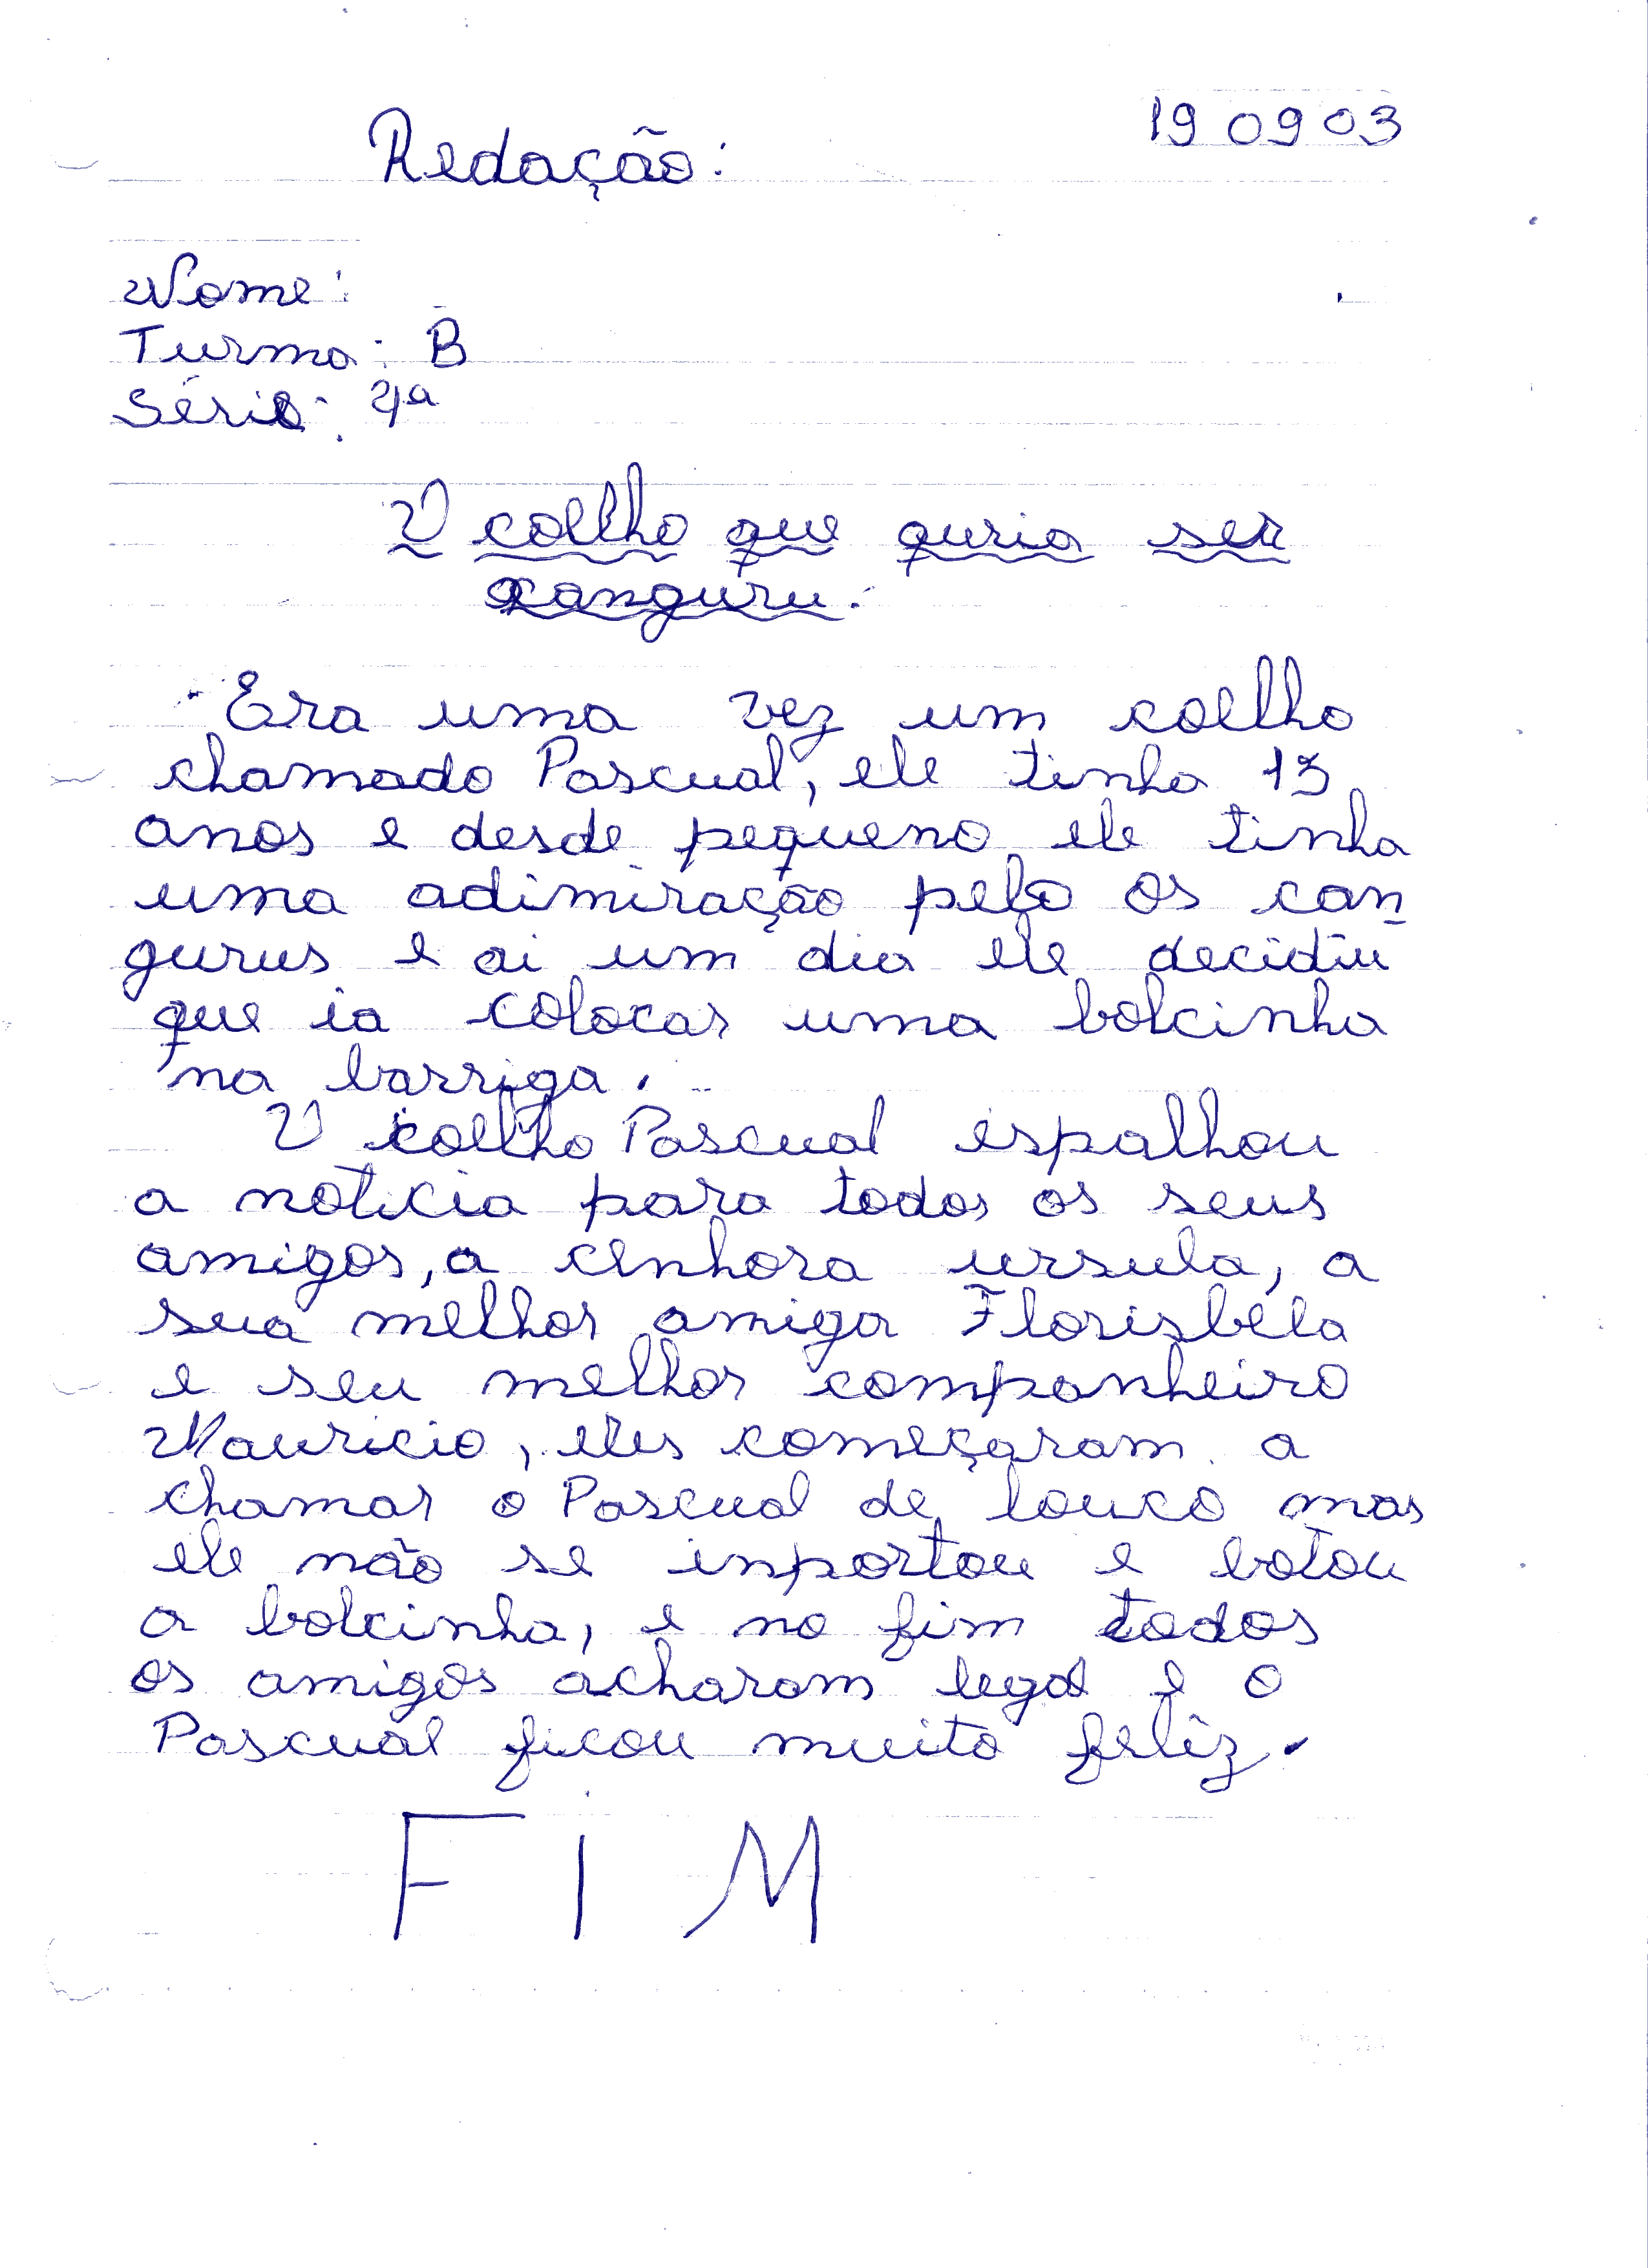 19 09 03
Redação:
Nome:
Turma: B
Série: 4ª
O coelho que quria ser
canguru.
Era uma vez um coelho
chamado Pascual, ele tinha 13
anos e desde pequeno ele tinha
uma adimiração pelo os can
gurus e ai um dia ele decidiu
que ia colocar uma bolcinha
na barriga.
O coelho Pascual espalhou
a noticia para todos os seus
amigos, a cenhora ursula, a
sua melhor amiga Florisbéla
e seu melhor companheiro
Mauricio, eles começaram a
chamar o Pascual de louco mas
ele não se inportou e botou
a bolcinha, e no fim todos
os amigos acharam legal e o
Pascual ficou muito feliz.
FIM